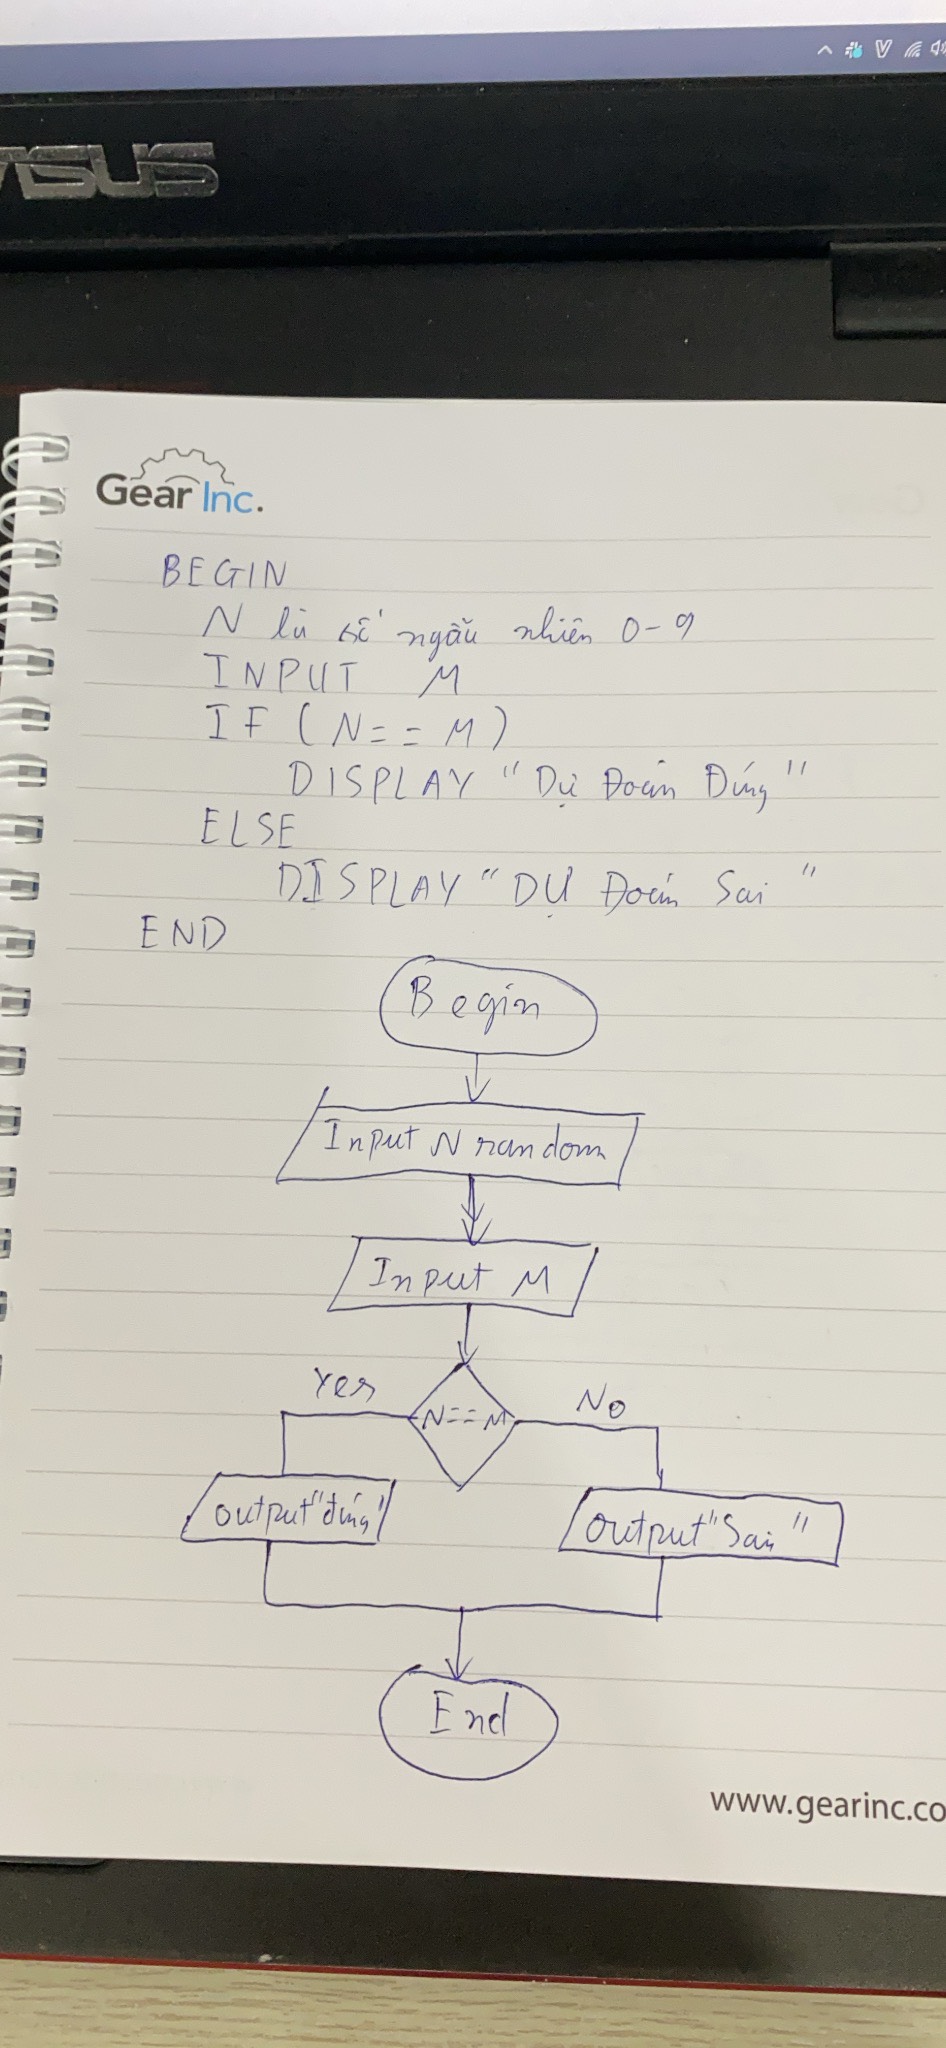 ASUS
Gear Inc.
BEGIN
N là số ngẫu nhiên 0-9
INPUT M
IF (N== M)
DISPLAY "Dự Đoán Đúng"
ELSE
DISPLAY "DỰ Đoán Sai"
END
Begin
Input N random
Input M
Yes
N== M
No
output "đúng"
output "Sai"
End
www.gearinc.co